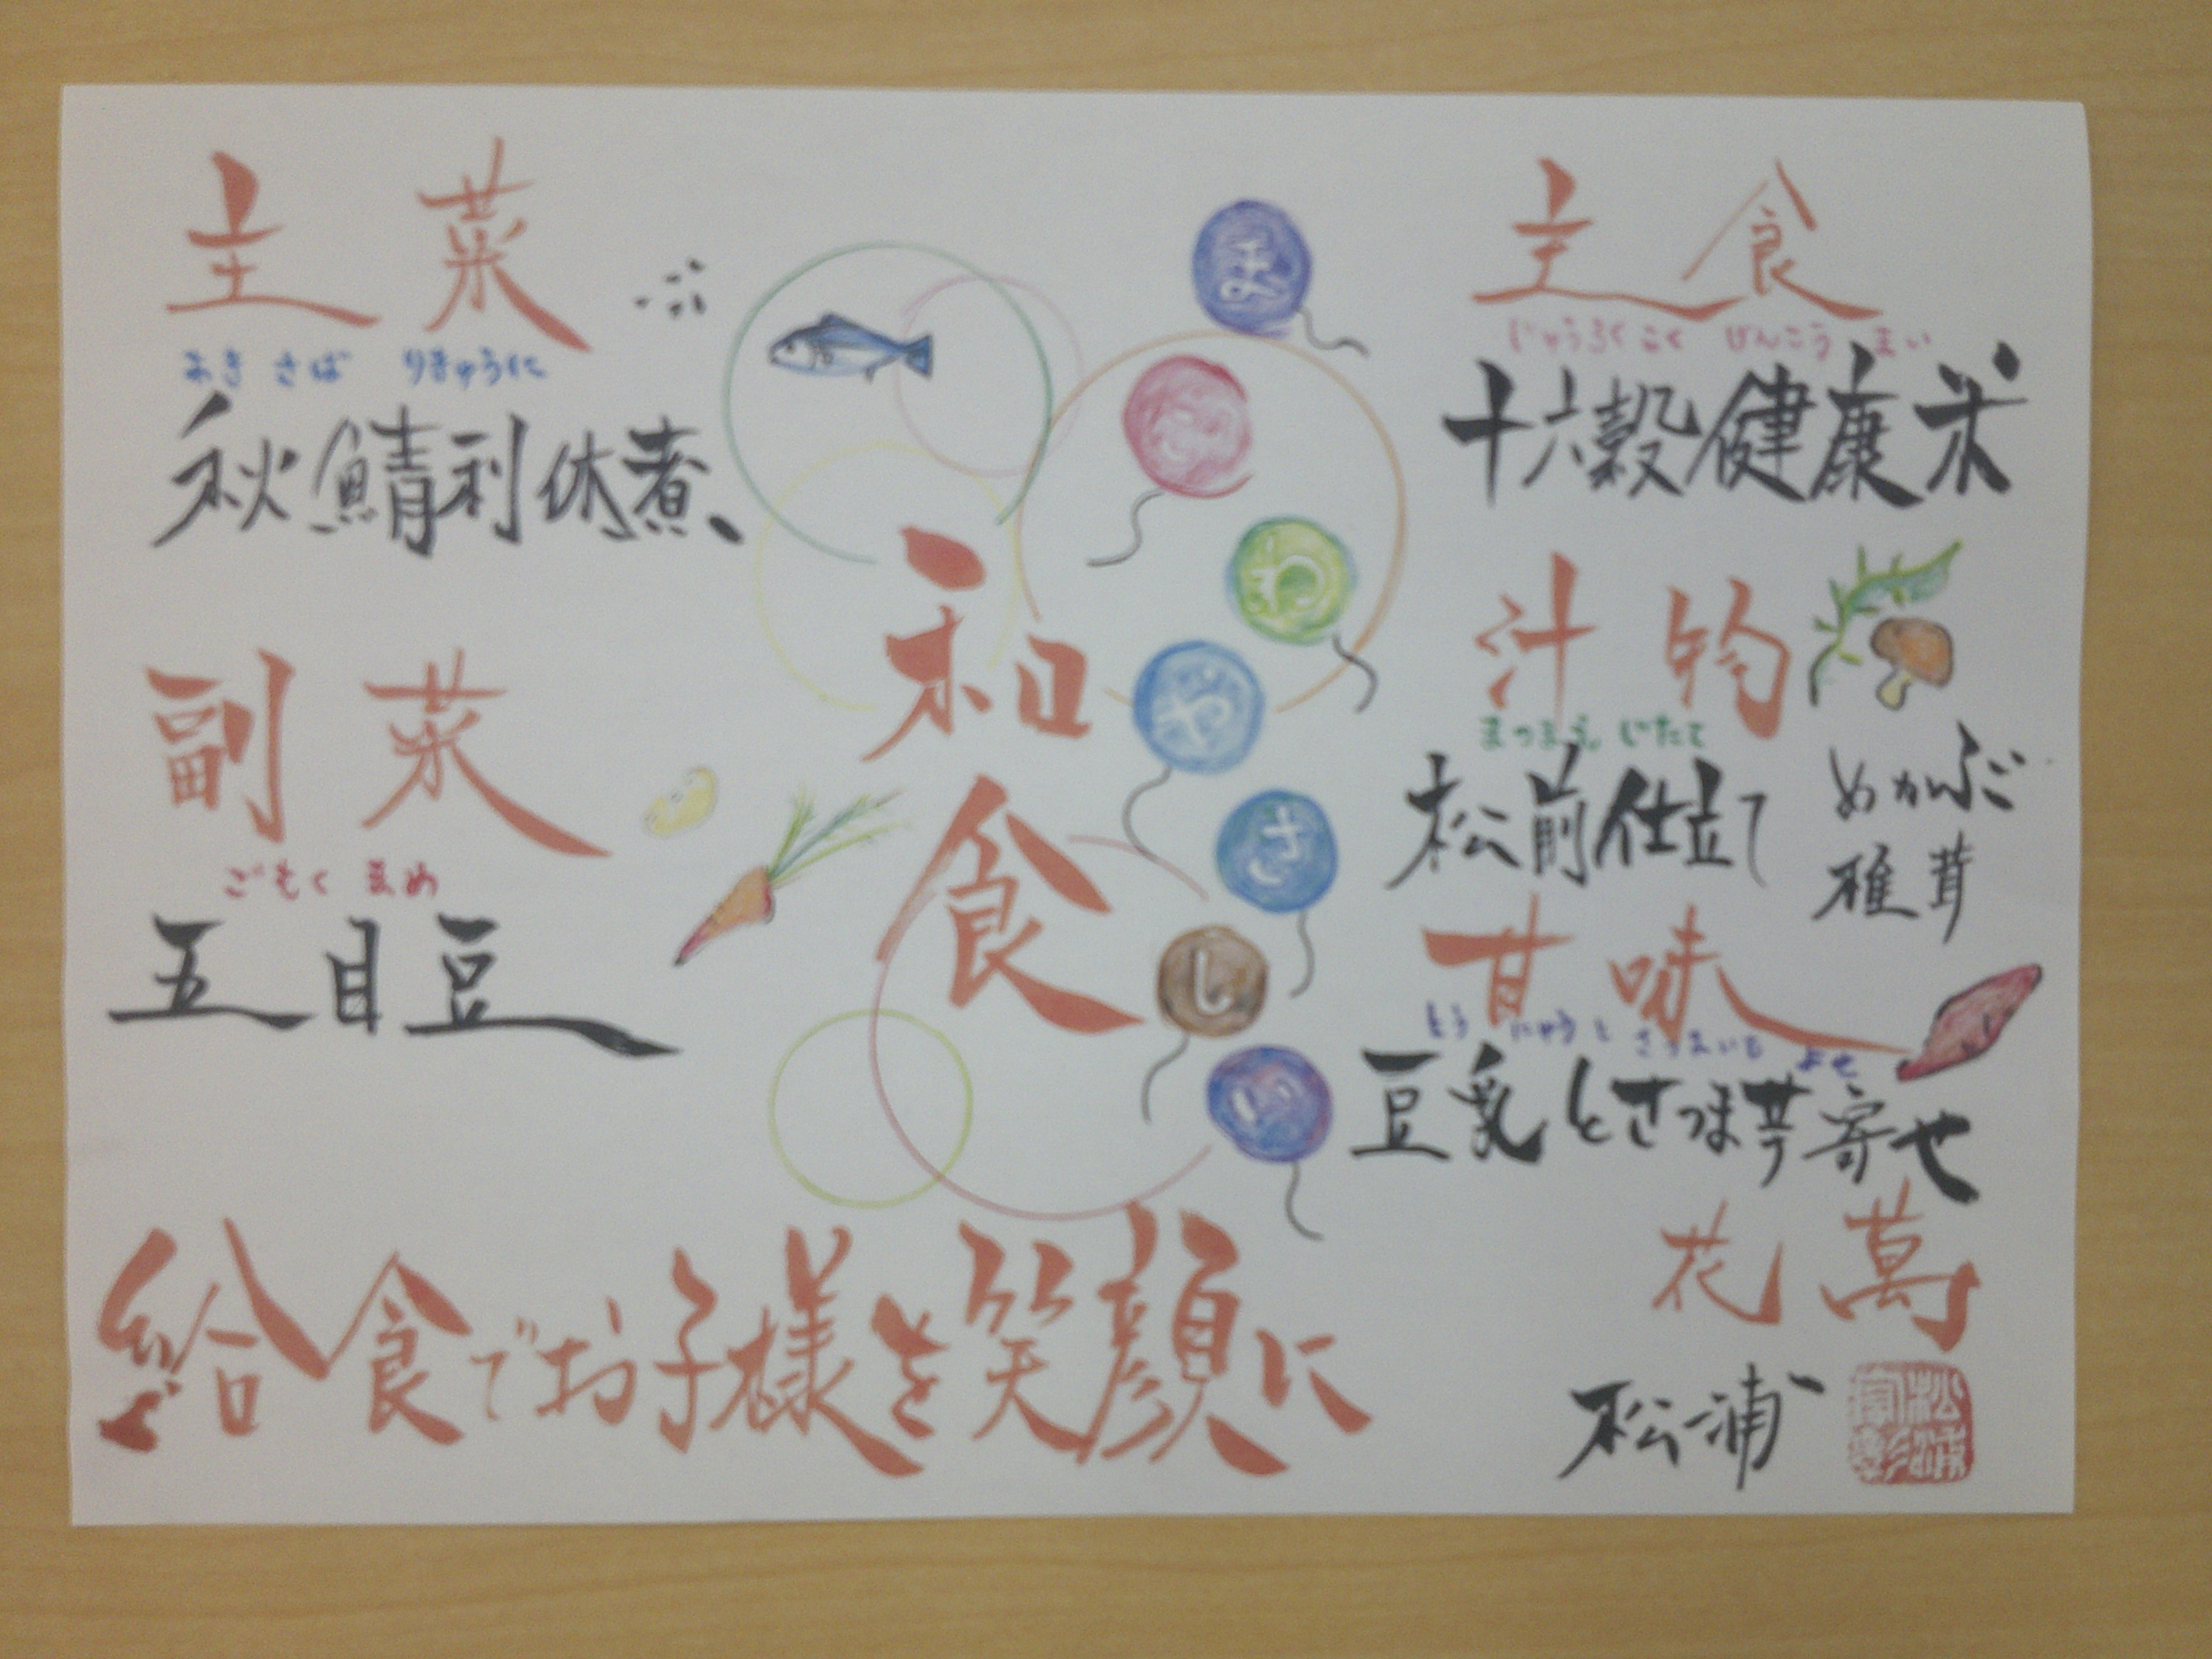 主菜
あき さば りきゅうに
秋鯖利休煮
副菜
ごもく まめ
五目豆
和食
ま
ご
わ
や
さ
し
い
主食
じゅうろくこく けんこう まい
十六穀健康米
汁物
まつまえ じたて
松前仕立て
めかぶ
椎茸
甘味
とう にゅう と さつまいも よせ
豆乳とさつま芋寄せ
給食でお子様を笑顔に
花萬
松浦